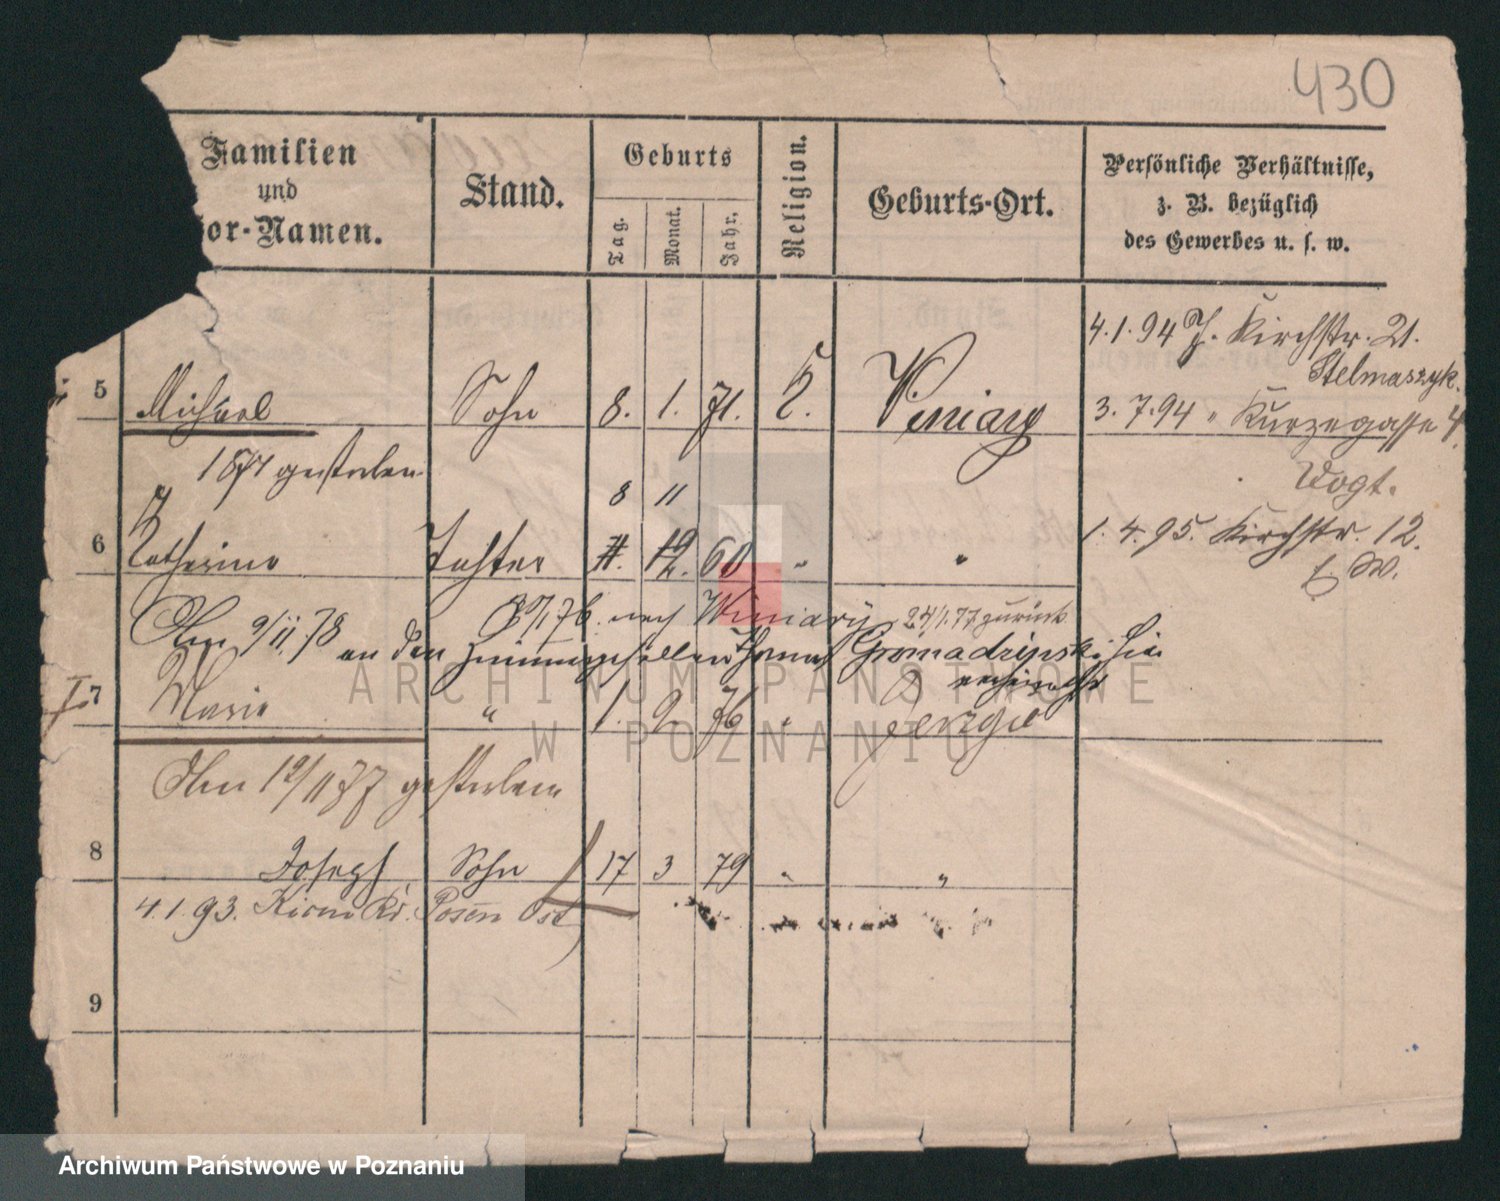 430
Familien
und
or-Namen.
Stand.
Geburts
Tag.
Monat.
Jahr.
Religion.
Geburts-Ort.
Persönliche Verhältnisse,
z. B. bezüglich
des Gewerbes u. s. w.
4.1.94 J. Kirchstr. 21.
Stelmaszyk.
5 Michael Sohn 8. 1. 71. k. Winiary
3.7.94 " Kurzegasse 4
Vogt.
1871 gestorben
8 11
6 Katharina Tochter 7. 12. 60 " "
1.4.95. Kirchstr. 12.
E. W.
76. nach Winiary, 24/1.77 zurück
Am 9/11.78 an den Zimmergesellen Thomas Gromadzinski hier
verheirathet
7 Marie " 1. 2. 76 " Jerzyce
Am 12/1 77 gestorben
8 Joseph Sohn 17 3 79 " "
4.1.93. Posen Ost
9
ARCHIWUM PAŃSTWOWE
W POZNANIU
Archiwum Państwowe w Poznaniu